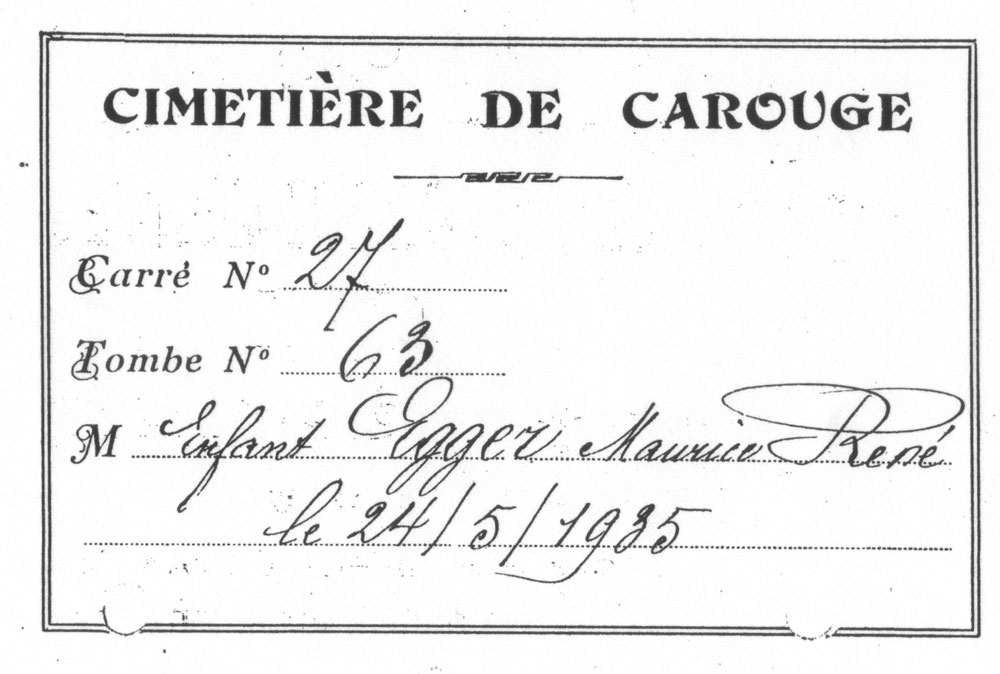 CIMETIÈRE DE CAROUGE
Carré Nº 27
Tombe Nº 63
M Enfant Egger Maurice René
le 24/5/1935